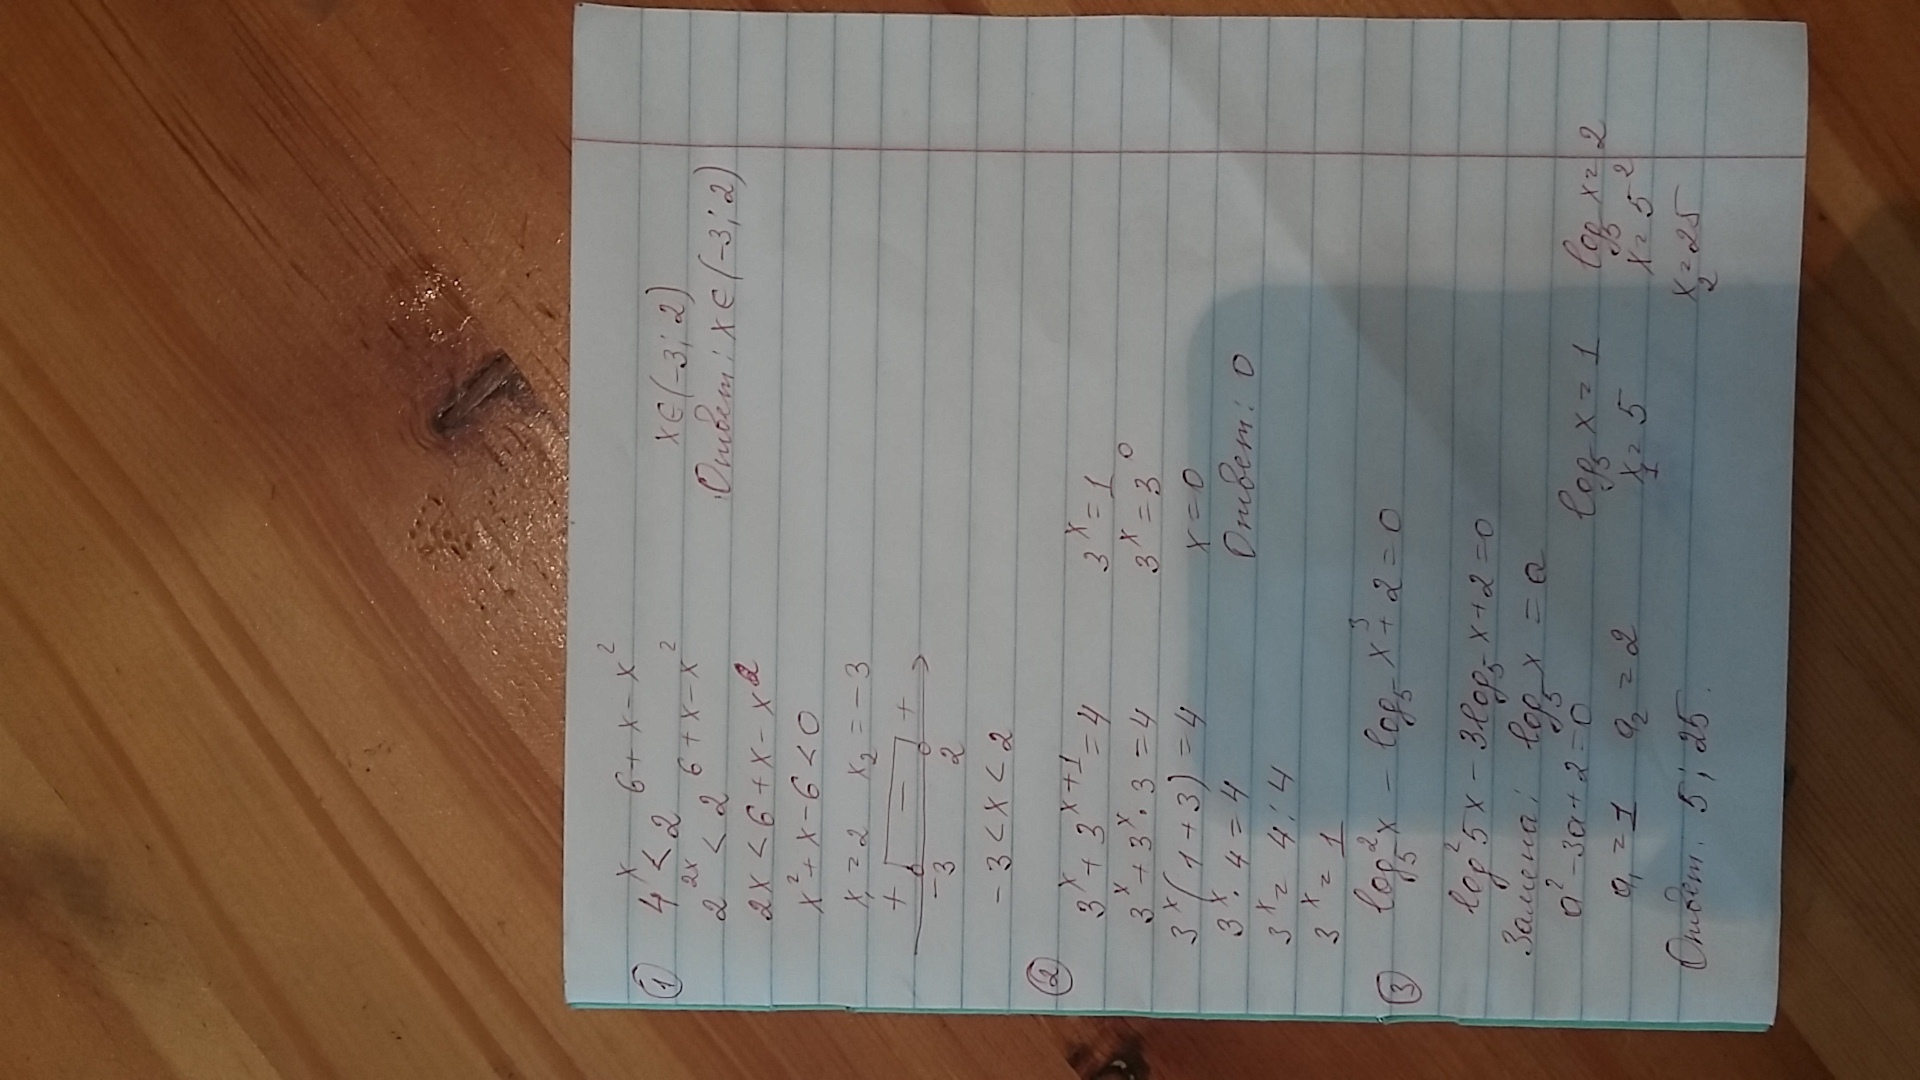 ① 4^x < 2^(6+x-x²)
2^(2x) < 2^(6+x-x²)
2x < 6+x-x²
x²+x-6<0
x₁=2 x₂=-3
+ - +
-3 2
-3<x<2
x∈(-3;2)
Ответ: x∈(-3;2)
② 3^x+3^(x+1)=4
3^x+3^x·3=4
3^x(1+3)=4
3^x·4=4
3^x=4:4
3^x=1
3^x=1
3^x=3^0
x=0
Ответ: 0
③ log₅²x - log₅x³+2=0
log²5x-3log₅x+2=0
Замена: log₅x=a
a²-3a+2=0
a₁=1 a₂=2
log₅x=1
x₁=5
log₅x=2
x=5²
x₂=25
Ответ. 5; 25.